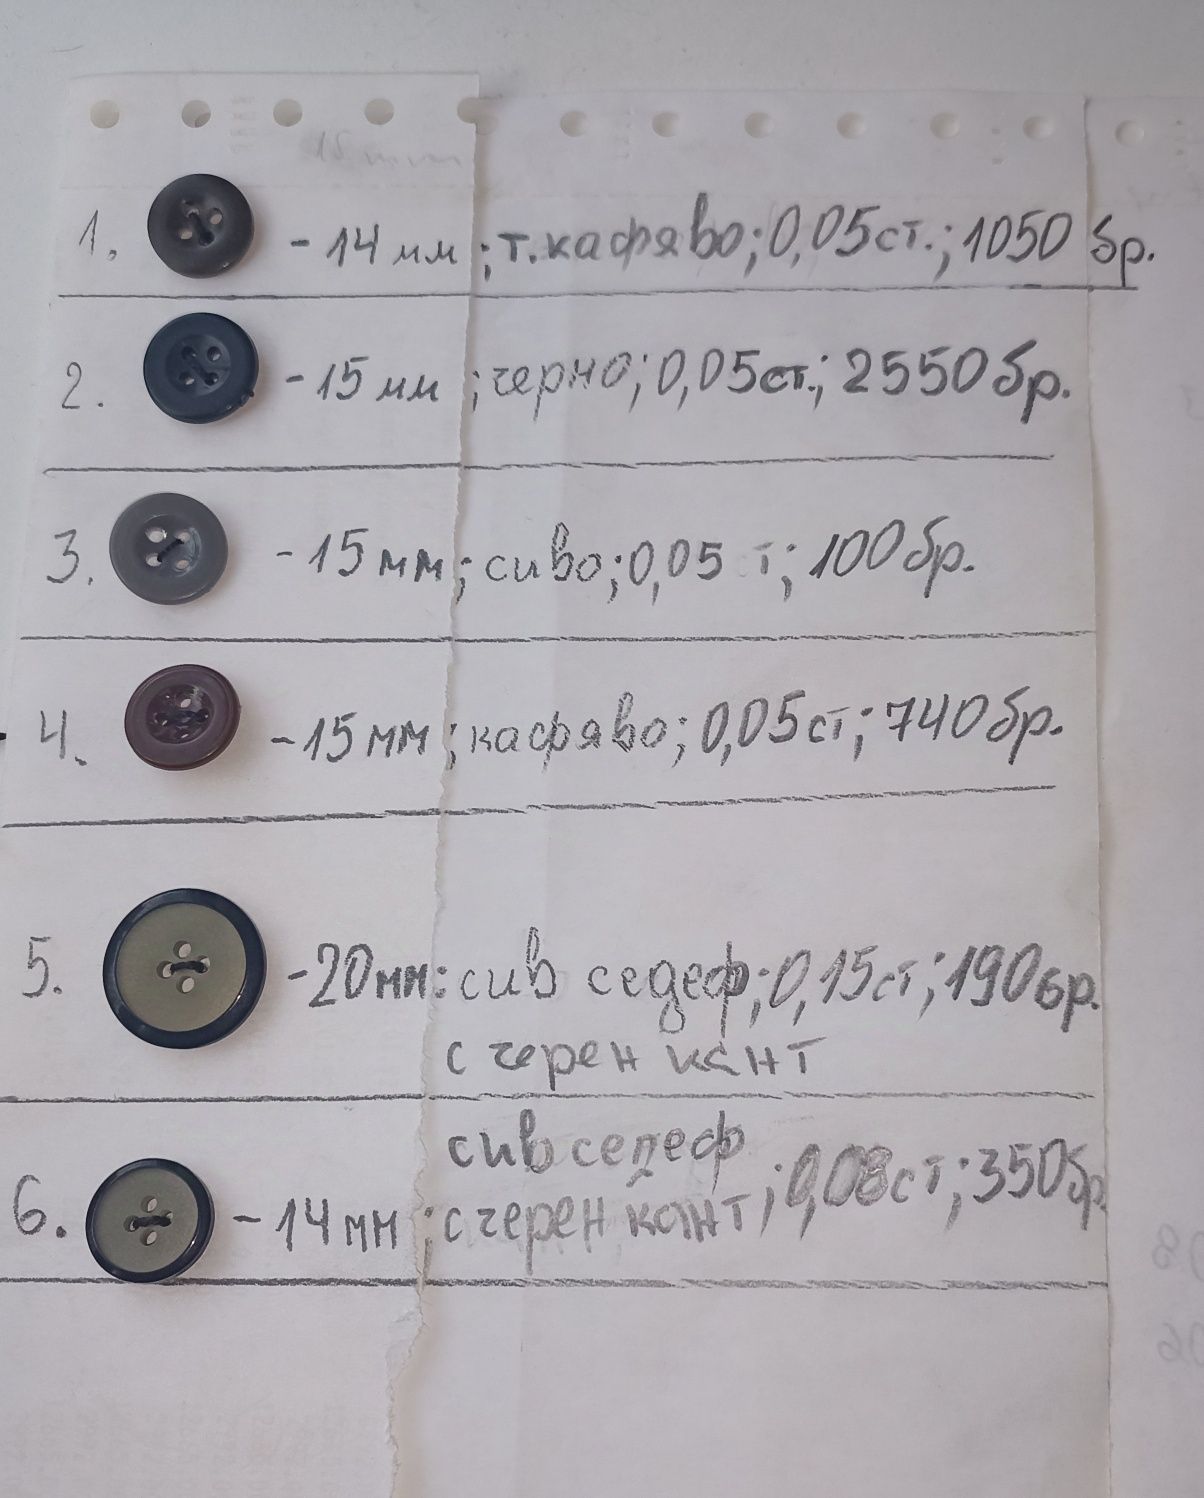 1. - 14 мм ; т. кафяво; 0,05 ст.; 1050 бр.
2. - 15 мм ; черно; 0,05 ст.; 2550 бр.
3. - 15 мм; сиво; 0,05 т; 100 бр.
4. - 15 мм ; кафяво; 0,05 ст; 740 бр.
5. - 20 мм: сив седеф; 0,15 ст; 190 бр.
с черен кант
сив седеф
6. - 14 мм ; с черен кант ; 0,08 ст; 350 бр.